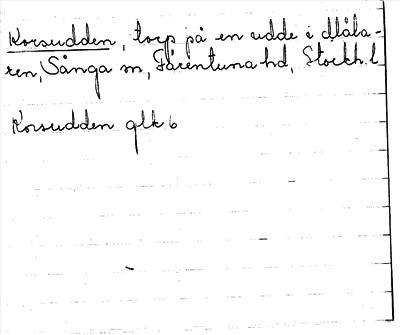 Korsudden, torp på en udde i Mäla-
ren, Sånga sn, Färentuna hd, Stockh. l.
Korsudden glk 6